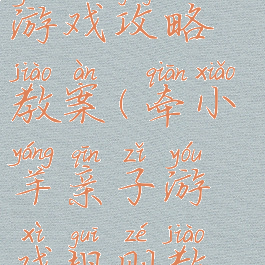 游戏攻略
jiào àn qiān xiǎo
教案(牵小
yáng qīn zǐ yóu
羊亲子游
xì guī zé jiào
戏规则教